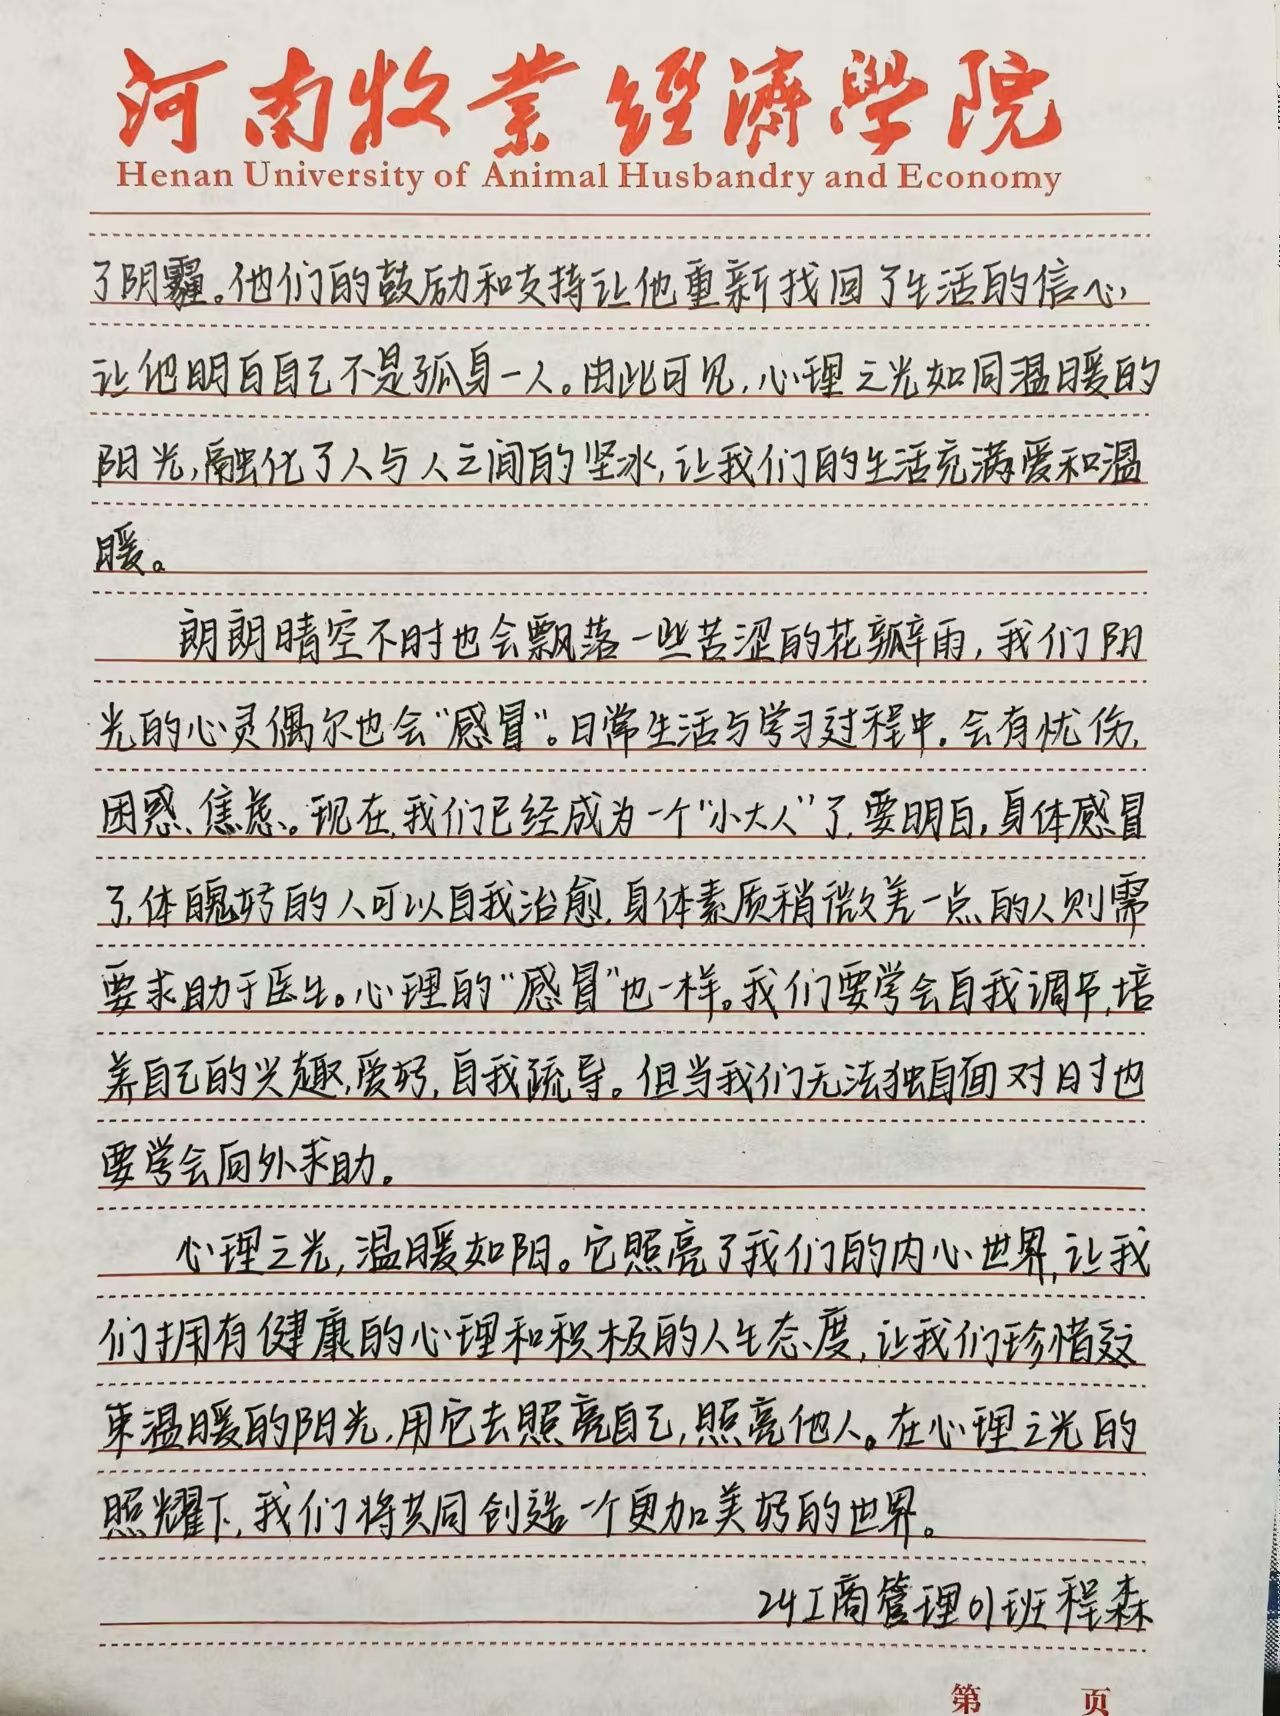 河南牧业经济学院
Henan University of Animal Husbandry and Economy
了阴霾。他们的鼓励和支持让他重新找回了生活的信心,
让他明白自己不是孤身一人。由此可见,心理之光如同温暖的
阳光,融化了人与人之间的坚冰,让我们的生活充满爱和温
暖。
朗朗晴空不时也会飘落一些苦涩的花瓣雨,我们阴
光的心灵偶尔也会“感冒”。日常生活与学习过程中.会有忧伤,
困惑、焦虑。现在,我们已经成为一个“小大人”了,要明白,身体感冒
了,体魄好的人可以自我治愈,身体素质稍微差一点的人则需
要求助于医生。心理的“感冒”也一样。我们要学会自我调节,培
养自己的兴趣,爱好,自我疏导。但当我们无法独自面对时也
要学会向外求助。
心理之光,温暖如阳。它照亮了我们的内心世界,让我
们拥有健康的心理和积极的人生态度,让我们珍惜这
束温暖的阳光,用它去照亮自己,照亮他人。在心理之光的
照耀下,我们将共同创造一个更加美好的世界。
24工商管理01班程森
第 页